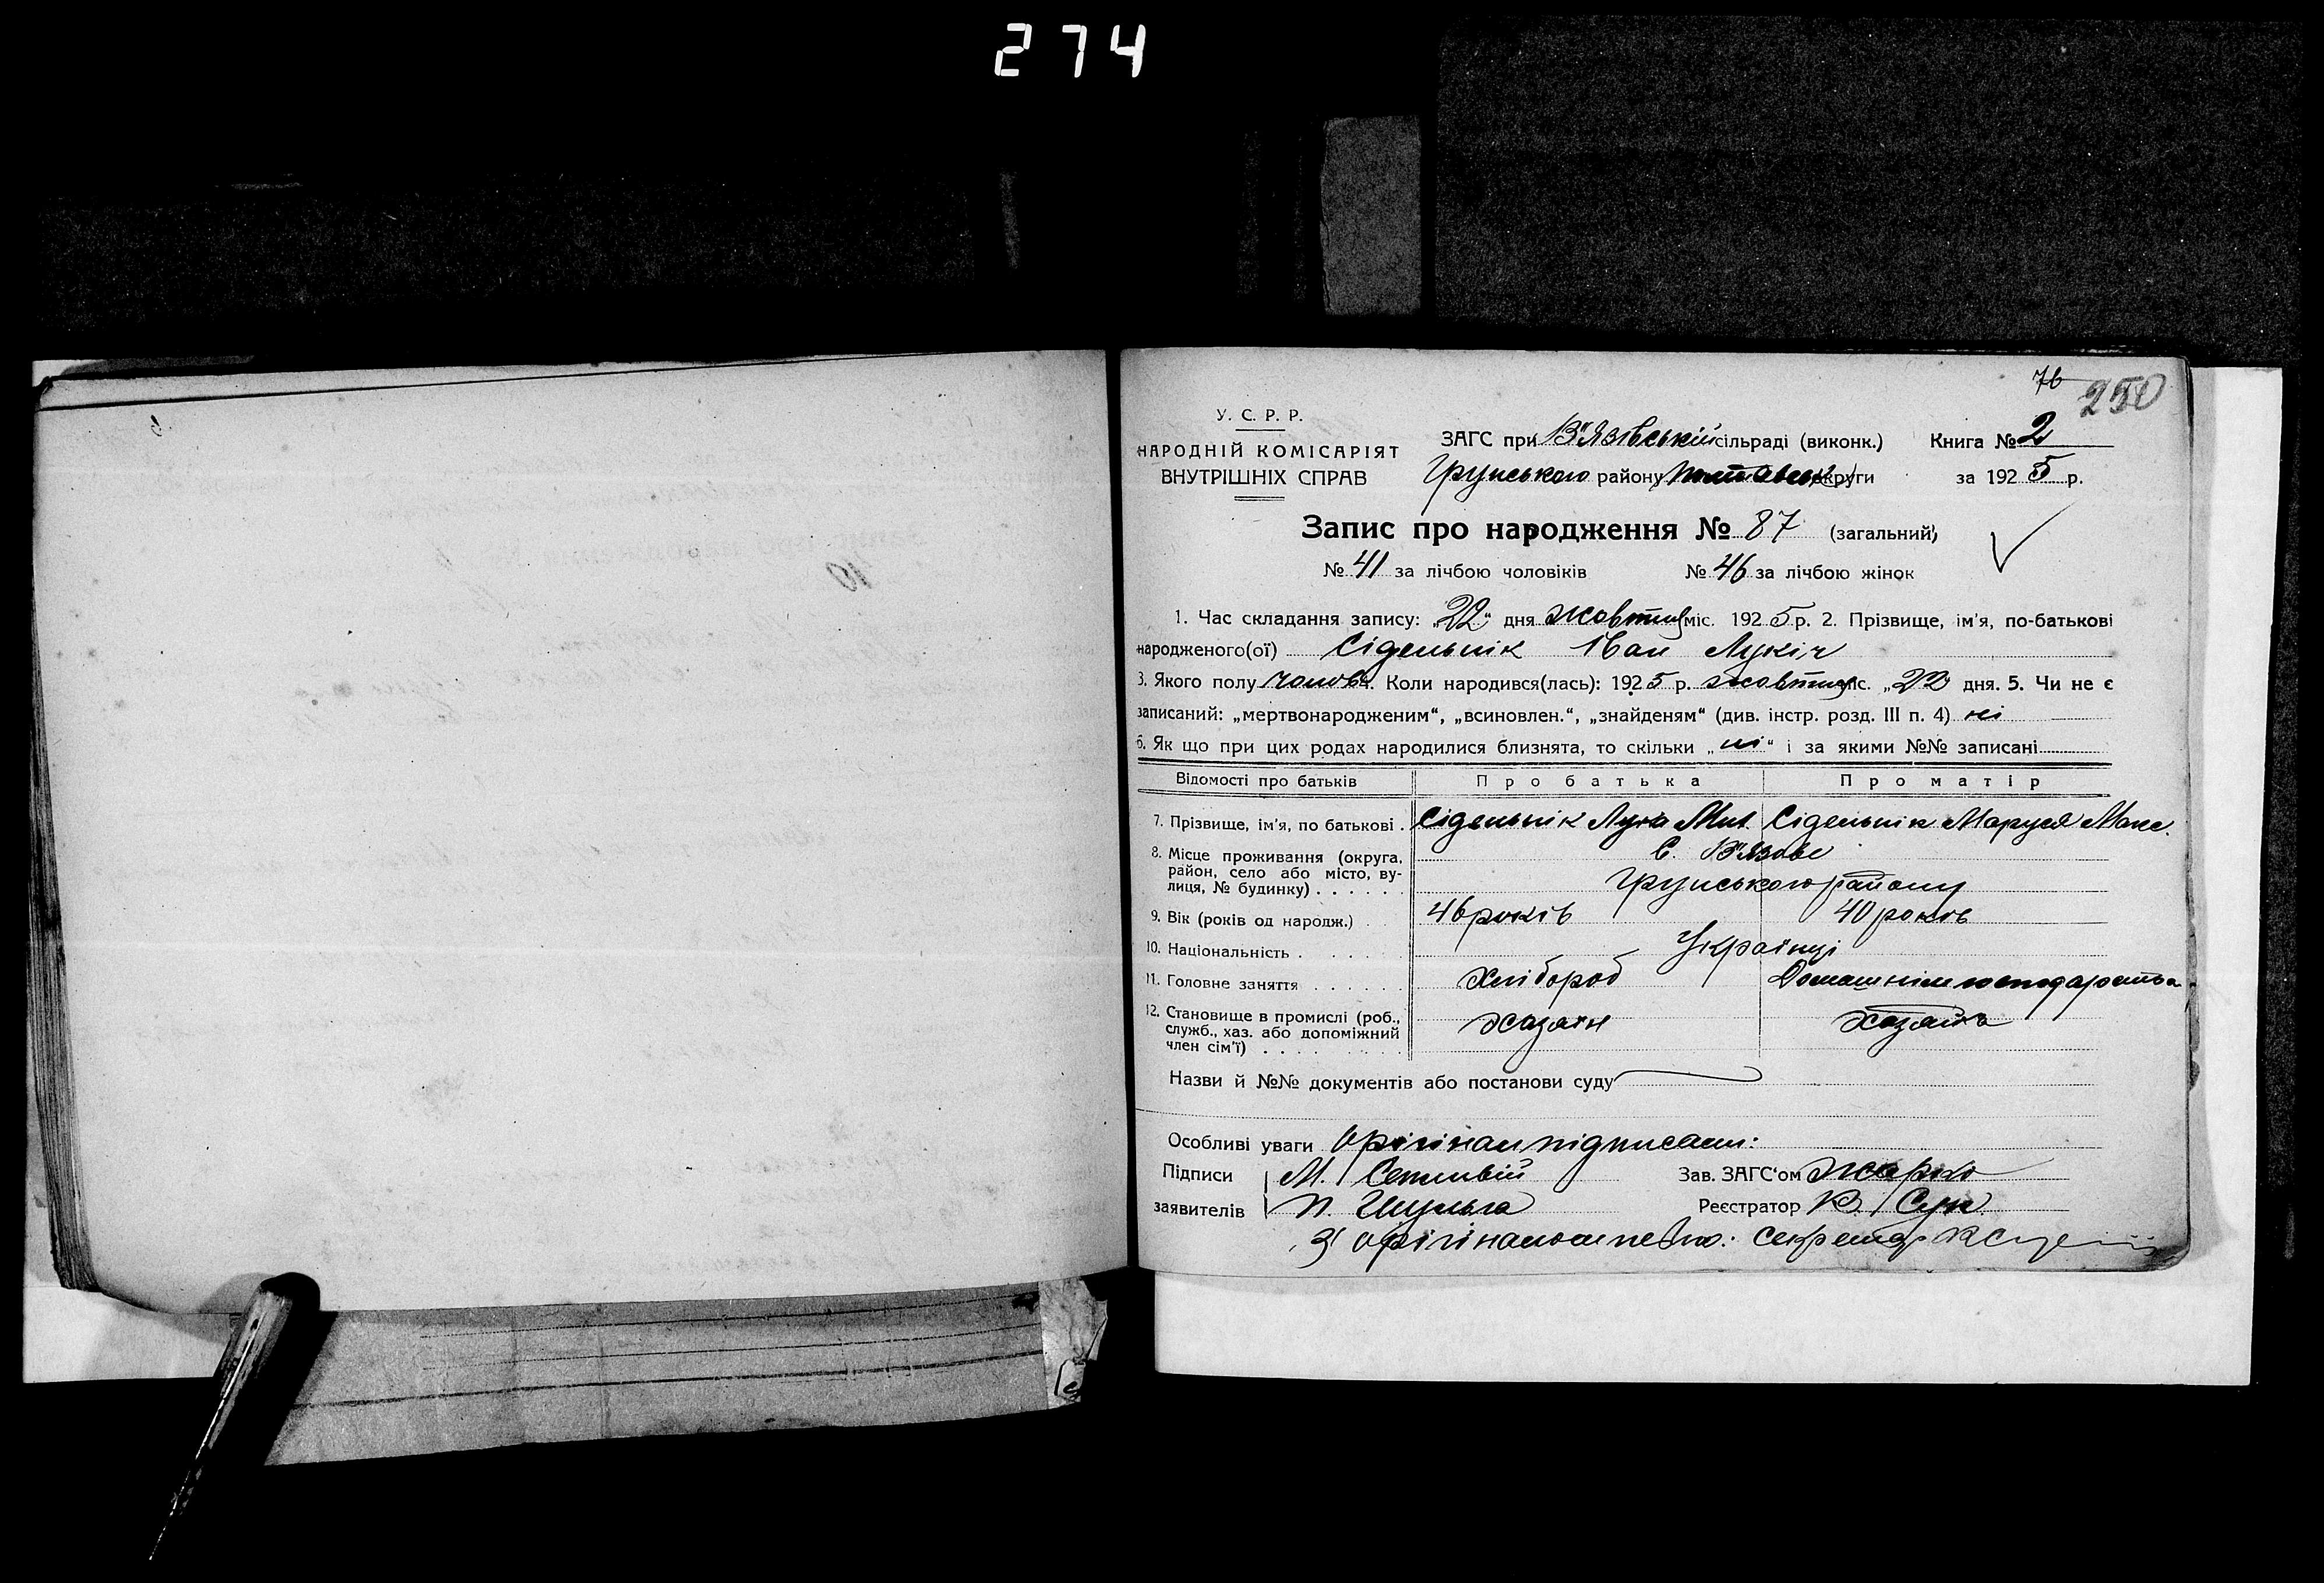 274
76
250
У. С. Р. Р.
НАРОДНІЙ КОМІСАРІЯТ
ВНУТРІШНІХ СПРАВ
ЗАГС при В'язівській сільраді (виконк.) Книга № 2
Грунського району Полтавськ округи за 1925 р.
Запис про народження № 87 (загальний)
№ 41 за лічбою чоловіків № 46 за лічбою жінок
1. Час складання запису: „22“ дня жовтня міс. 1925 р. 2. Прізвище, ім'я, по-батькові
народженого(ої) Сідельнік Іван Лукіч
3. Якого полу чолов. 4. Коли народився(лась): 1925 р. жовтня міс. „22 дня. 5. Чи не є
записаний: „мертвонародженим“, „всиновлен.“, „знайденям“ (див. інстр. розд. III п. 4) ні
6. Як що при цих родах народилися близнята, то скільки „ні“ і за якими №№ записані
Відомості про батьків Про батька Про матір
7. Прізвище, ім'я, по батькові . Сідельнік Лука Мит. Сідельнік Маруся Макс.
8. Місце проживання (округа, район, село або місто, вулиця, № будинку) . . . . . . С. В'язове
Грунського району
9. Вік (років од народж.) . . 46 років 40 років
10. Національність . . . . . . Українці
11. Головне заняття . . . . . . Хлібороб Домашнім господарства
12. Становище в промислі (роб., служб., хаз. або допоміжний член сім'ї) . . . . . . Хазаін Хазяйка
Назви й №№ документів або постанови суду
Особливі уваги Орігінал підписали:
Підписи М. Зав. ЗАГС'ом Жарко
заявителів П. Шульга Реєстратор В. Сук
З орігіналом певно: Секретар